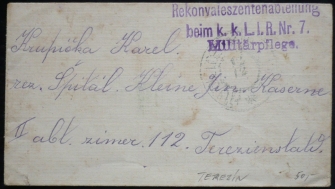 Rekonvaleszentenabteilung
beim k. k. L. I. R. Nr. 7.
Militärpflege.
Krupička Karel.
rez. Špitál. Kleine Jn. Kaserne
II abt. zimer. 112. Terezienstatt.
TEREZÍN